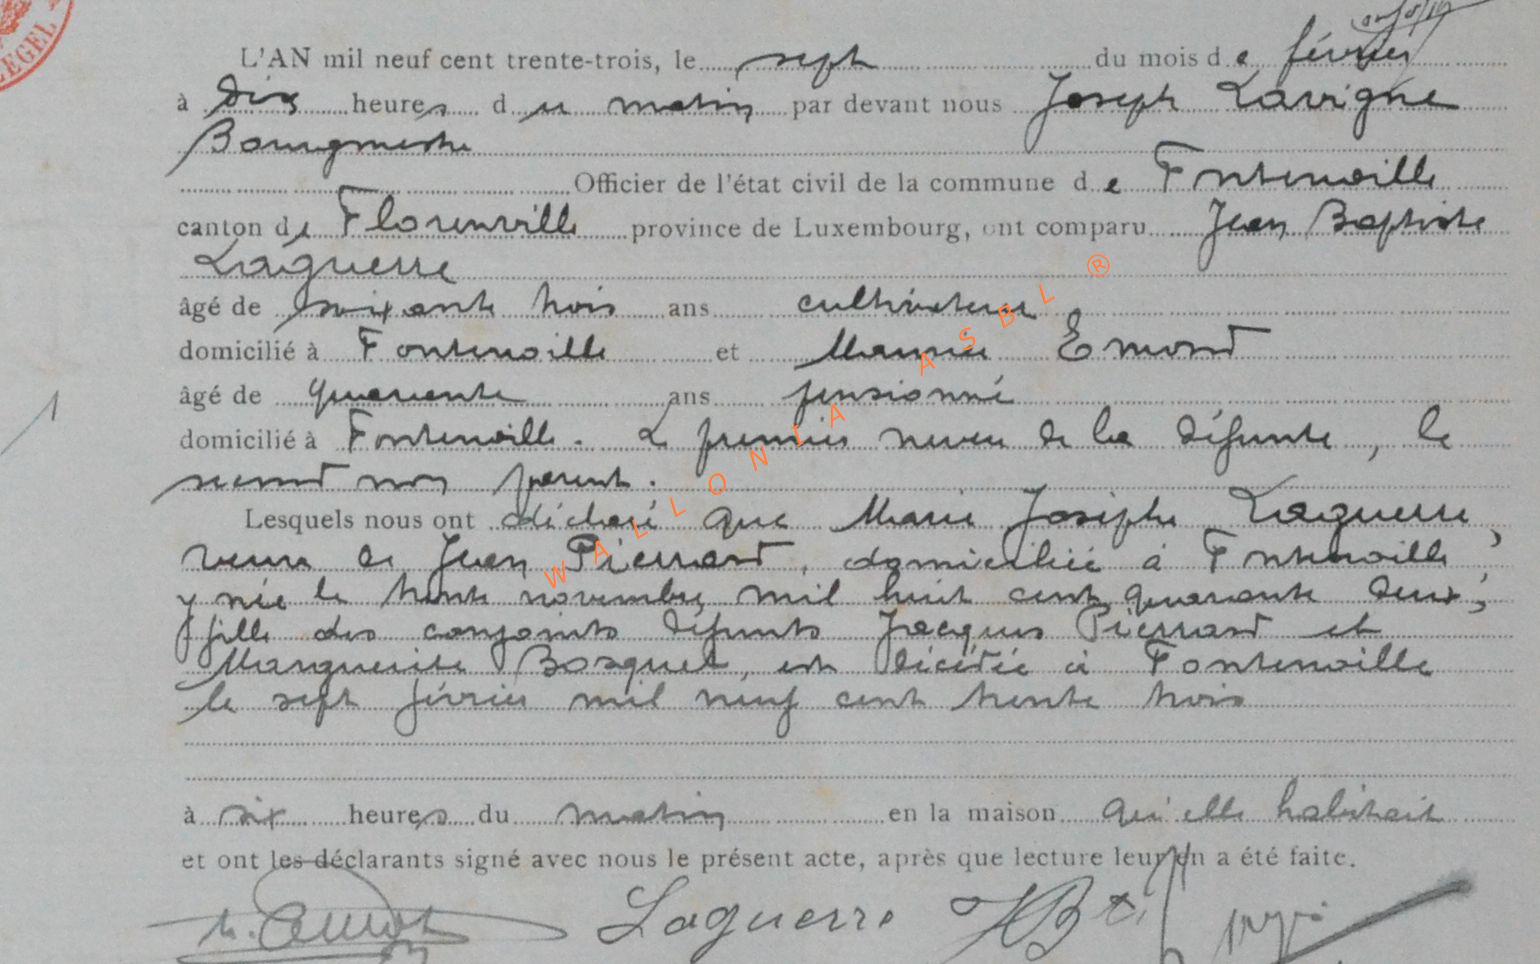 LEGEL
L'AN mil neuf cent trente-trois, le sept du mois de février
à dix heures du matin par devant nous Joseph Lavigne
Bourgmestre
Officier de l'état civil de la commune de Fontenoille
canton de Florenville province de Luxembourg, ont comparu Jean Baptiste
Laguerre
âgé de soixante trois ans cultivateur
domicilié à Fontenoille et Maurice Emond
âgé de quarante ans pensionné
domicilié à Fontenoille. Le premier neveu de la défunte, le
second non parent.
Lesquels nous ont déclaré que Marie Josèphe Laguerre
veuve de Jean Pierrard, domiciliée à Fontenoille,
y née le trente novembre mil huit cent quarante deux,
fille des conjoints défunts Jacques Pierrard et
Marguerite Bosquet, est décédée à Fontenoille
le sept février mil neuf cent trente trois
à six heures du matin en la maison qu'elle habitait
et ont les déclarants signé avec nous le présent acte, après que lecture leur en a été faite.
Laguerre JBte
WALLONIA ASBL ®